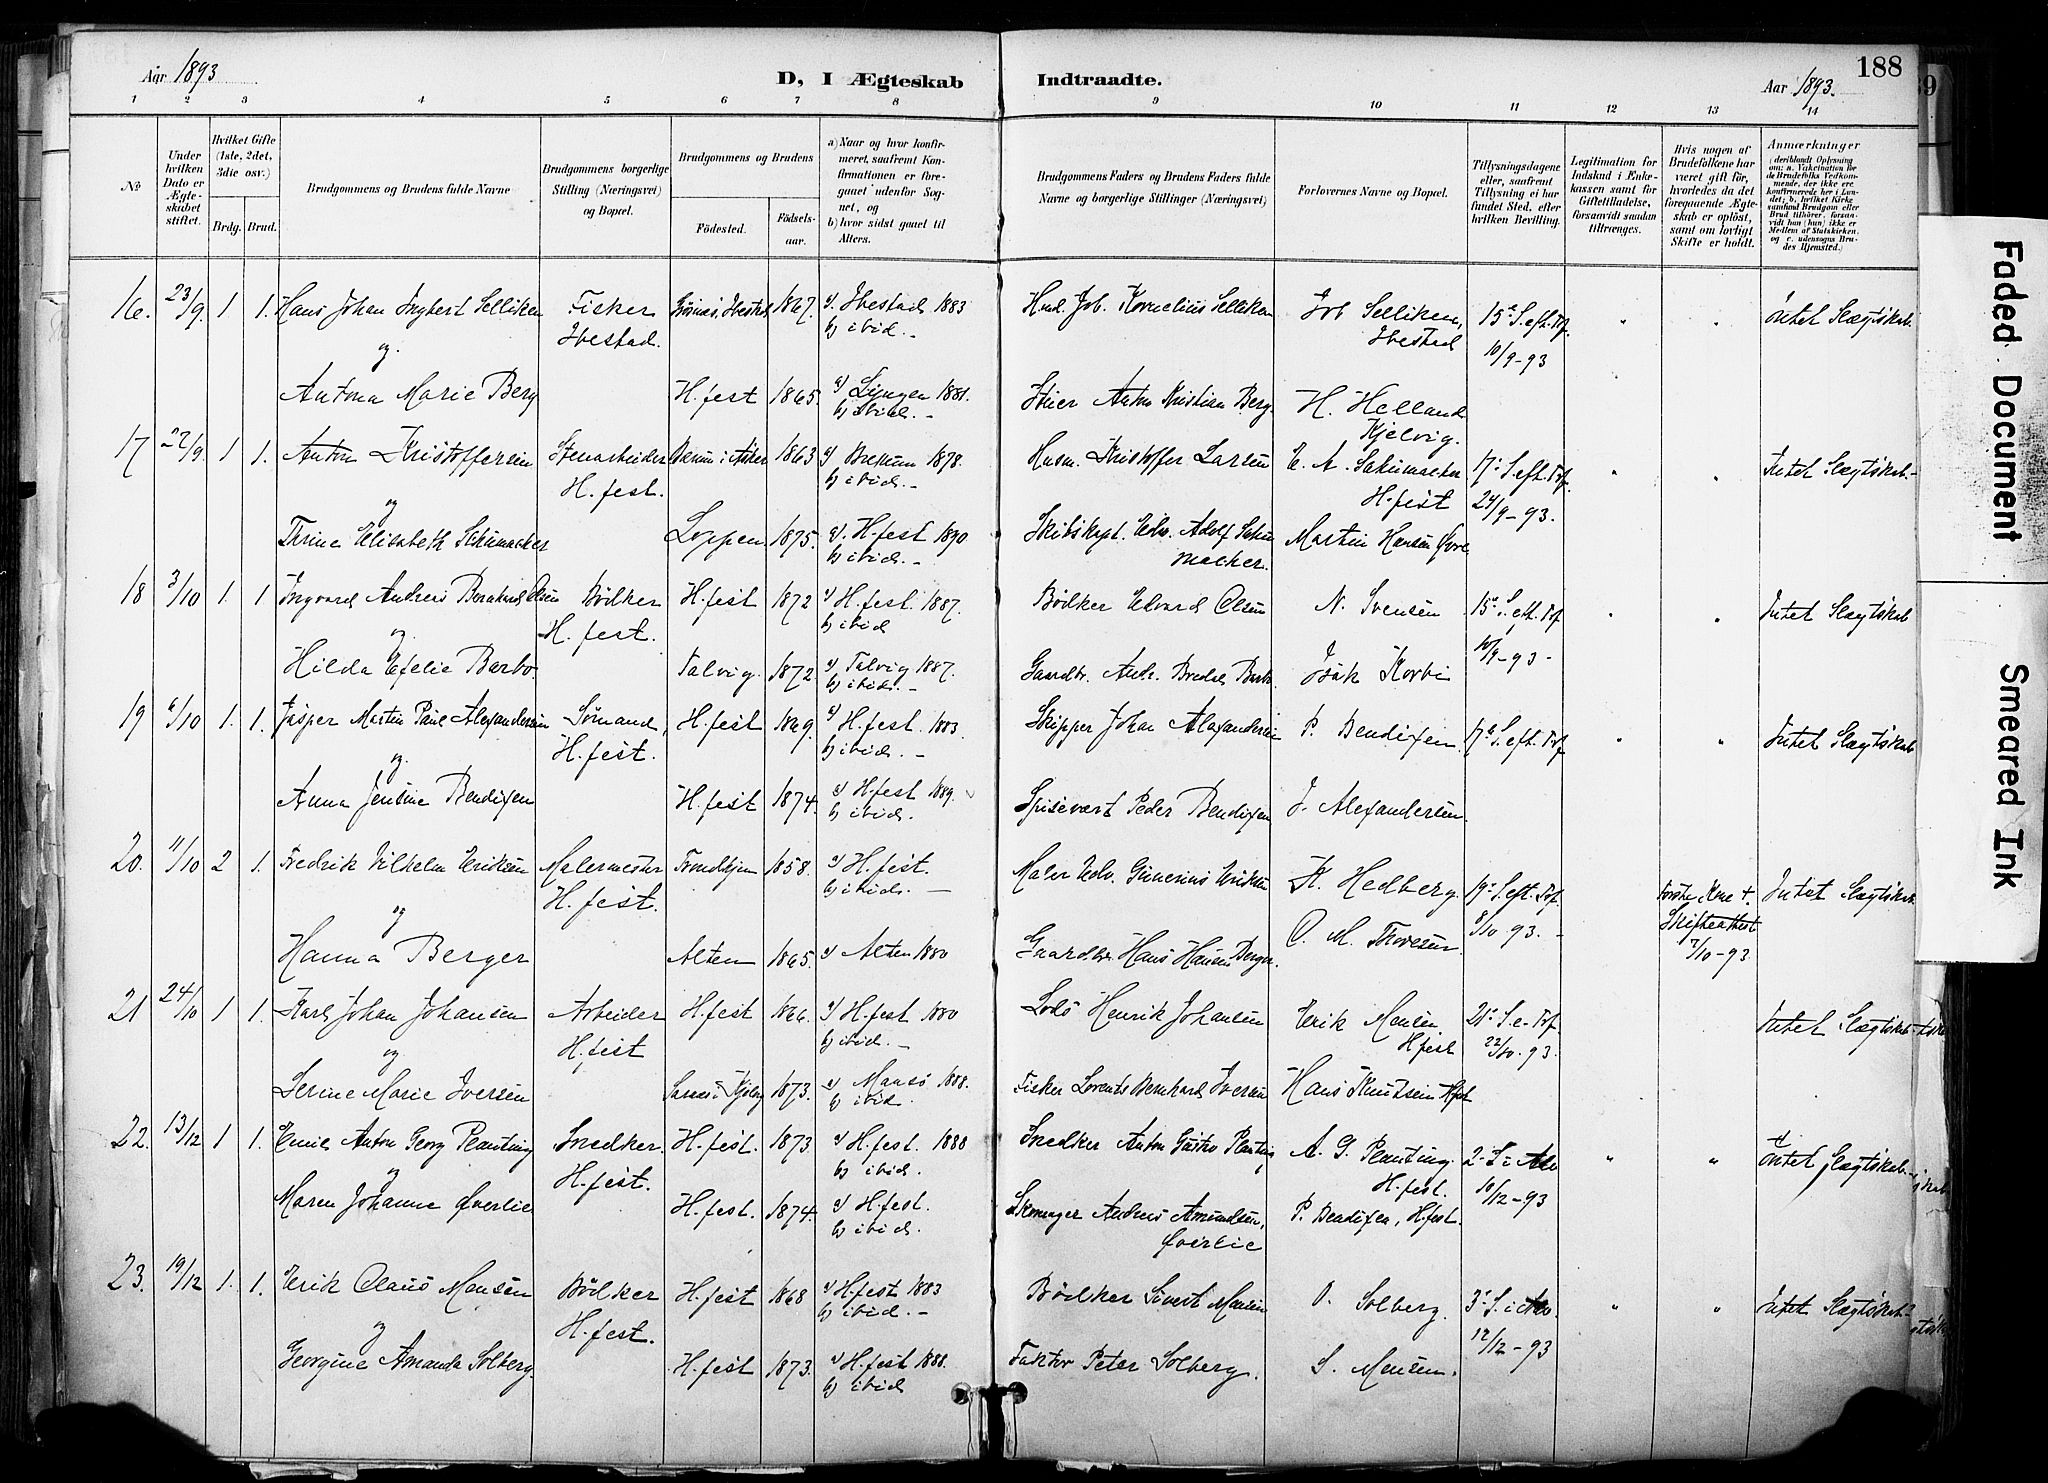 188
Aar 1893
D, I Ægteskab
Indtraadte.
Aar 1893.
1 2 3 4 5 6 7 8 9 10 11 12 13 14
No
Under hvilken Dato er Ægteskabet stiftet.
Hvilket Gifte (1ste, 2det, 3die osv.)
Brdg. Brud.
Brudgommens og Brudens fulde Navne
Brudgommens borgerlige Stilling (Næringsvei) og Bopæl.
Brudgommens og Brudens
Födested.
Födselsaar.
a) Naar og hvor konfirmeret, saafremt Konfirmationen er foregaaet udenför Sognet, og
b) hvor sidst gaaet til Alters.
Brudgommens Faders og Brudens Faders fulde Navne og borgerlige Stillinger (Næringsvei)
Forlovernes Navne og Bopæl.
Tillysningsdagene eller, saafremt Tillysning ei har fundet Sted, efter hvilken Bevilling.
Legitimation for Indskud i Enkekassen samt for Giftetilladelse, forsaavidt saadan tiltrænges.
Hvis nogen af Brudefolkene har været gift för, hvorledes da det foregaaende Ægteskab er oplöst, samt om lovligt Skifte er holdt.
Anmærkninger
(deriblandt Oplysning om: a. Vakcination for de Brudefolks Vedkommende, der ikke ere konfirmerede her i Landet; b. hvilket Kirkesamfund Brudgom eller Brud tilhörer, forsaavidt han (hun) ikke er Medlem af Statskirken, og c. udensogns Brudes Hjemsted.)
16. 23/9. 1 1. Hans Johan Ingbert Selliken Fisker Ibestad. 1867. a) Ibestad 1883 b) ibid. Kornelius Selliken Job Selliken, Ibestad 15de S. eft. Tref. 10/9-93 " " Intet Slægtskab.
og
Antona Marie Berg H.fest 1865. a) Lyngen 1881. b) ibid. Anton Kristian Berg. H. Helland Kjelvig.
17 1 1. Anton Kristoffersen Stenarbeider H.fest. 1863 a) 1878. b) ibid. Husm. Kristoffer Larsen E. A. Schumacker H.fest 17de S. eft. Tref. 24/9-93. " " Intet Slægtskab.
og
Thrine Elisabeth Schumacker Loppen 1875. a) H.fest 1890 b) ibid. Skibskapt. Edv. Adolf Schumacker. Martin Hansen
18 3/10 1. 1 Ingvard Andreas Bernhard Olsen Bödker H.fest. H.fest 1872 a) H.fest. 1887. b) ibid Bödker Edvard Olsen N. Svensen 15de S. eft. Tref 10/9-93 " " Intet Slægtskab
og
Hilda Efelie Barbo. Talvig. 1872. a) Talvig 1887. b) ibid. Gaardbr. Andr. Isak Korbi
19 6/10 1. 1. Jasper Martin Paul Alexandersen Sömand, H.fest. H.fest 1869. a) H.fest. 1883. b) ibid. Skipper Johan Alexandersen P. Bendixen. 17de S. eft. Tref " " Intet Slægtskab
og
Anna Jensine Bendixen H.fest 1874. a) H.fest 1889. b) ibid. Spisevært Peder Bendixen J. Alexandersen.
20. 11/10 2 1. Fredrik Vilhelm Eriksen Malermester H.fest. Trondhjem 1858. a) H.fest. b) ibid. Maler Edv. Eriksen K. Hedberg. 19de S. eft. Tref. 8/10 93. Förste Kone †. Skifteattest 7/10-93 Intet Slægtskab
og
Hanna Berger Alten 1865. a) Alten 1880 Gaardbr. Hans Hansen Berger. O. M. Thoresen
21 24/10 1 1. Karl Johan Johansen Arbeider H.fest H.fest 1866. a) H.fest 1880 b) ibid. Lods Henrik Johansen Erik Mensen H.fest 21de S. e. Tref 22/10-93. Intet Slægtskab
og
Serine Marie Iversen 1873. a) Maasö 1888. b) ibid. Fisker Lorents Bernhard Iversen Hans Knutsen H.fest
22. 13/12 1 1. Emil Anton Georg Planting Snedker. H.fest. H.fest. 1873. a) H.fest. 1888 b) ibid. Snedker Anton Gustav Planting A. G. Planting. H.fest. 2. S. i Adv 10/12-93 " " Intet Slægtskab
og
Maren Johanne Øverlie H.fest. 1874. a) H.fest. b) ibid. Skomager Andreas Amundsen, Øverlie P. Bendixen, H.fest.
23. 19/12 1. 1. Erik Olaus Mensen Bödker H.fest. H.fest 1868 a) H.fest 1883 b) ibid. Bödker Sivert Mensen O. Solberg. 3. S. i Adv. 17/12-93 " " Intet Slægtskab
og
Georgine Amanda Solberg. H.fest 1873. a) H.fest. 1888. b) ibid Faktor Peter Solberg. S. Mensen.
Faded Document
Smeared Ink